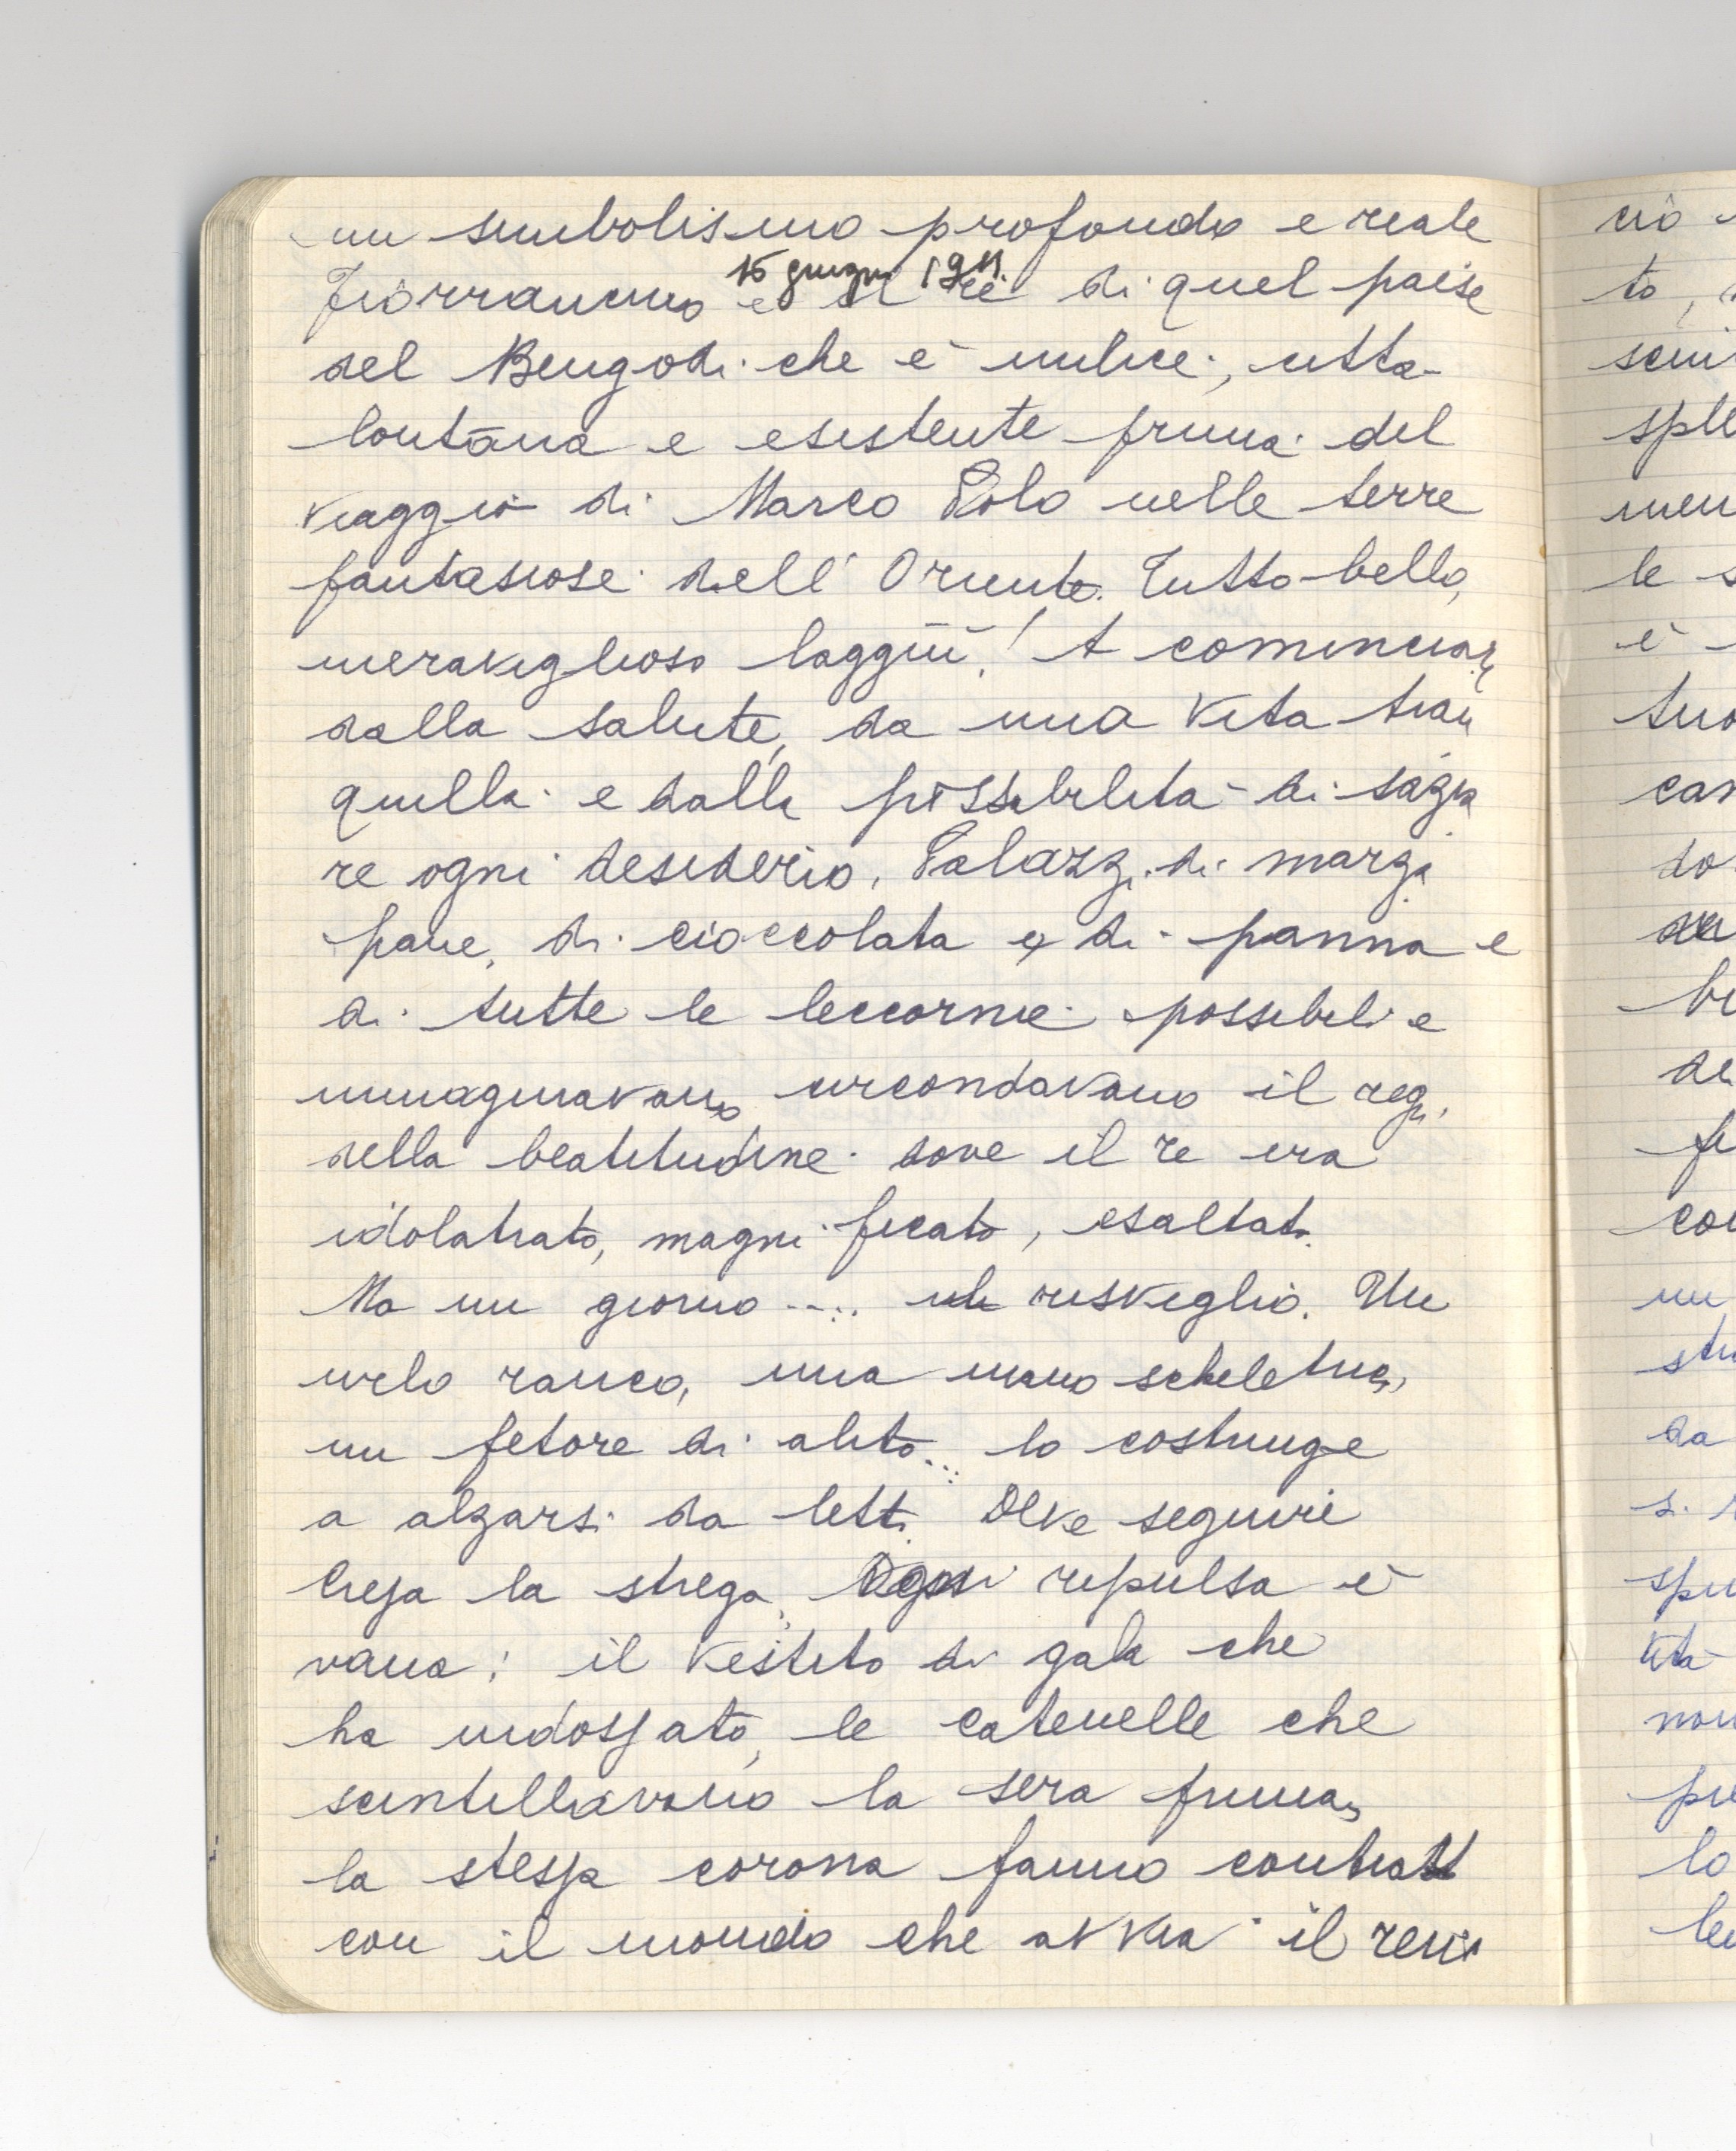 un simbolismo profondo e reale
15 giugno 1911.
Fiorrancino è il re di quel paese
del Bengodi che è umbce, città
lontana e esistente prima del
viaggio di Marco Polo nelle terre
fantasiose dell'Oriente. Tutto bello,
meraviglioso laggiù! A cominciare
dalla salute, da una vita tran
quilla e dalla possibilità di sazia
re ogni desiderio. Palazzi di marza
pane, di cioccolata e di panna e
di tutte le leccornie possibili e
immaginavano circondavano il regn.
della beatitudine dove il re era
idolatrato, magnificato, esaltato.
Ma un giorno .... risveglio. Un
urlo rauco, una mano scheletrica,
un fetore di alito... lo costringe
a alzarsi da letto. Deve seguire
la strega. Ogni repulsa è
vana: il vestito di gala che
ha indossato, le catenelle che
scintillavano la sera prima,
la stessa corona fanno contrasto
con il mondo che avvia il
ciò
to,
le
è
tuo
do
de
co
un
da
si
non
lo